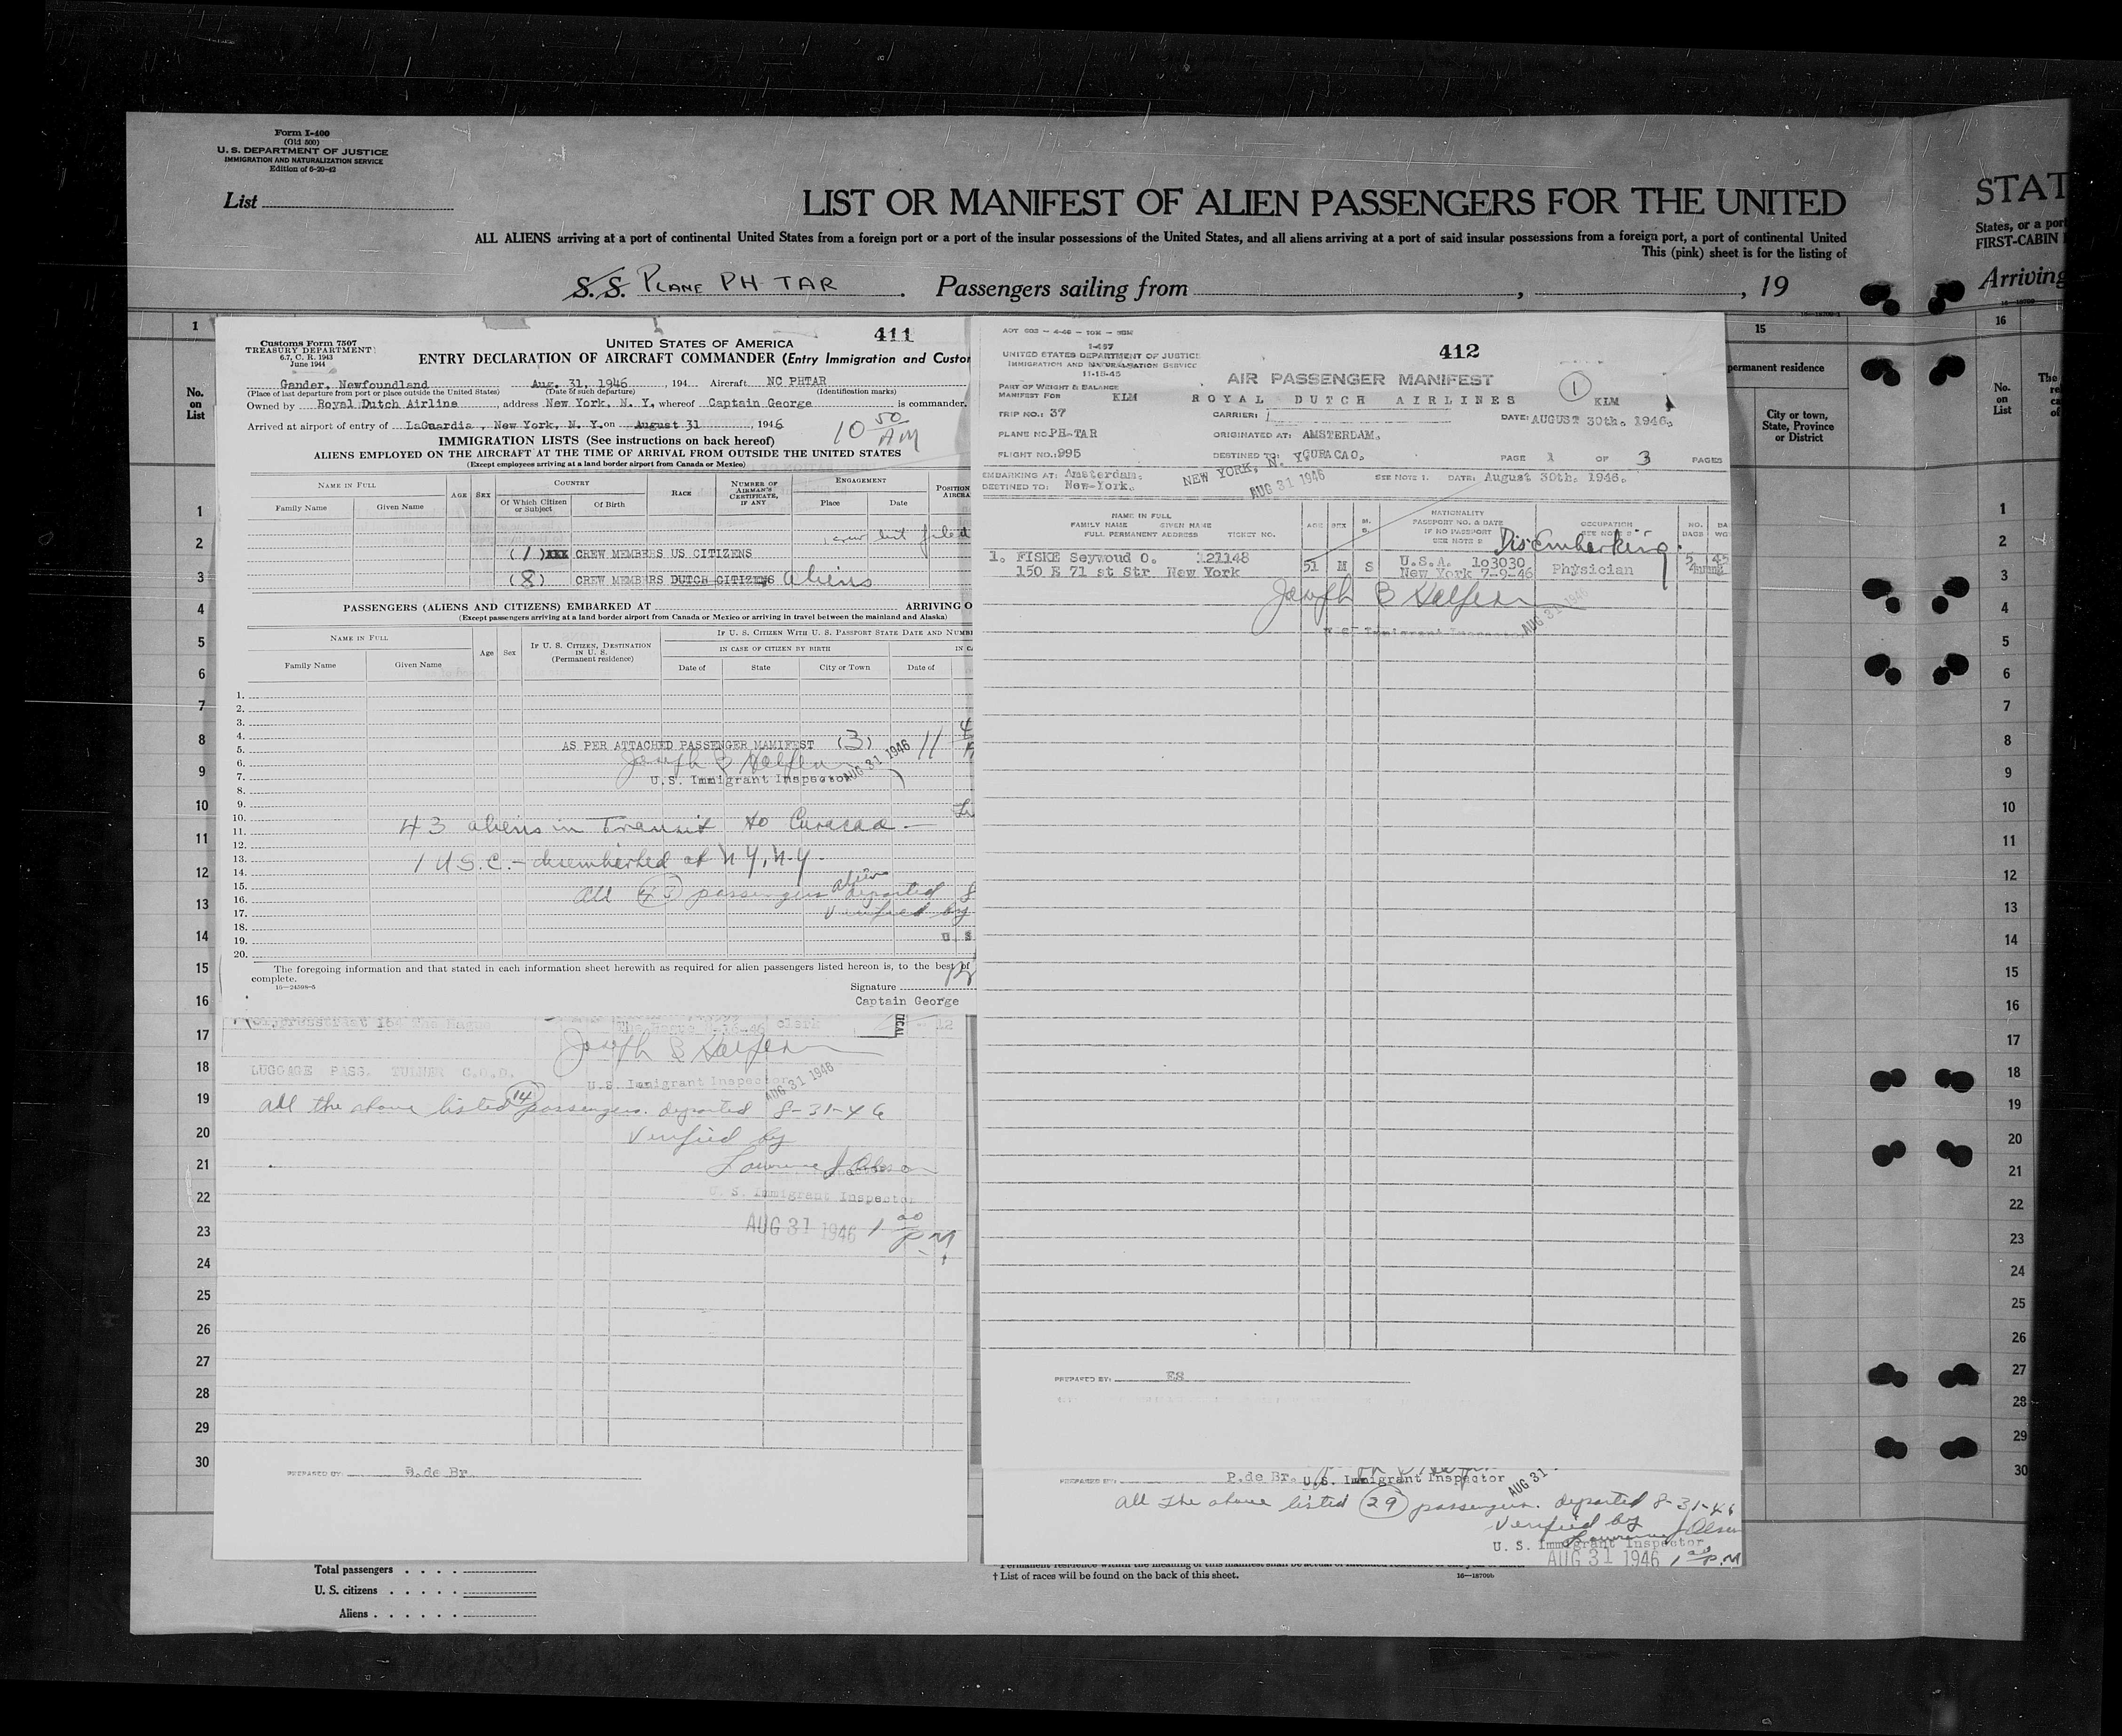 Form I-400
(Old 500)
U. S. DEPARTMENT OF JUSTICE
IMMIGRATION AND NATURALIZATION SERVICE
Edition of 6-20-42
List
LIST OR MANIFEST OF ALIEN PASSENGERS FOR THE UNITED
ALL ALIENS arriving at a port of continental United States from a foreign port or a port of the insular possessions of the United States, and all aliens arriving at a port of said insular possessions from a foreign port, a port of continental United
This (pink) sheet is for the listing of
S.S. PLANE PH TAR . Passengers sailing from , , 19
STAT
States, or a port
FIRST-CABIN
Arriving
No.
on
List
1
2
3
4
5
6
7
8
9
10
11
12
13
14
15
16
17
18
19
20
21
22
23
24
25
26
27
28
29
30
411
Customs Form 7507
TREASURY DEPARTMENT
6.7, C. R. 1943
June 1944
UNITED STATES OF AMERICA
ENTRY DECLARATION OF AIRCRAFT COMMANDER (Entry Immigration and Custo
Gander, Newfoundland Aug. 31, 1946 , 194 Aircraft NC PHTAR
(Place of last departure from port or place outside the United States) (Date of such departure) (Identification marks)
Owned by Royal Dutch Airline , address New York, N. Y. whereof Captain George is commander.
Arrived at airport of entry of LaGuardia , New York, N. Y. on August 31 , 1946
10 50 AM
IMMIGRATION LISTS (See instructions on back hereof)
ALIENS EMPLOYED ON THE AIRCRAFT AT THE TIME OF ARRIVAL FROM OUTSIDE THE UNITED STATES
(Except employees arriving at a land border airport from Canada or Mexico)
NAME IN FULL
Family Name Given Name
AGE SEX
COUNTRY
Of Which Citizen or Subject Of Birth
RACE
NUMBER OF AIRMAN'S CERTIFICATE, IF ANY
ENGAGEMENT
Place Date
POSITION
AIRCRA
crew list filed
(1) XXX CREW MEMBERS US CITIZENS
(8) CREW MEMBERS DUTCH CITIZENS aliens
PASSENGERS (ALIENS AND CITIZENS) EMBARKED AT ARRIVING O
(Except passengers arriving at a land border airport from Canada or Mexico or arriving in travel between the mainland and Alaska)
NAME IN FULL
Family Name Given Name
Age Sex
IF U. S. CITIZEN, DESTINATION IN U. S.
(Permanent residence)
IF U. S. CITIZEN WITH U. S. PASSPORT STATE DATE AND NUMB
IN CASE OF CITIZEN BY BIRTH IN CA
Date of State City or Town Date of
1.
2.
3.
4.
5.
6.
7.
8.
9.
10.
11.
12.
13.
14.
15.
16.
17.
18.
19.
20.
AS PER ATTACHED PASSENGER MAMIFEST (3)
U.S. Immigrant Inspector
AUG 31 1946
43 aliens in Transit to Curacao -
1 U.S.C. - disembarked at N Y, N.Y.
All 43 passengers alien departed 8
verified by
U S
The foregoing information and that stated in each information sheet herewith as required for alien passengers listed hereon is, to the best of
complete.
16—24598-5
Signature
Captain George
clerk
12
LUGGAGE PASS. TULNER C.O.D.
U.S. Immigrant Inspector
AUG 31 1946
All the above listed 14 passengers. departed 8-31-46
Verified by
U. S. Immigrant Inspector
AUG 31 1946 1 20 PM
PREPARED BY: P.de Br.
412
ADT 602 — 4-46 — 10M — BGM
I-467
UNITED STATES DEPARTMENT OF JUSTICE
IMMIGRATION AND NATURALISATION SERVICE
11-15-45
PART OF WEIGHT & BALANCE
MANIFEST FOR KLM
AIR PASSENGER MANIFEST
1
ROYAL DUTCH AIRLINES KLM
TRIP NO.: 37 CARRIER: DATE: AUGUST 30th. 1946.
PLANE NO. PH-TAR ORIGINATED AT: AMSTERDAM.
FLIGHT NO.: 995 DESTINED TO: CURACAO. PAGE 1 OF 3 PAGES
EMBARKING AT: Amsterdam. SEE NOTE 1. DATE: August 30th. 1946.
DESTINED TO: New-York.
NEW YORK, N. Y.
AUG 31 1946
NAME IN FULL
FAMILY NAME GIVEN NAME
FULL PERMANENT ADDRESS TICKET NO.
AGE SEX M. S.
NATIONALITY
PASSPORT NO. & DATE
IF NO PASSPORT
SEE NOTE 2
OCCUPATION
SEE NOTE
NO. BAGS BA WG
Disembarking
1. FISKE Seywoud O. 121148 51 M S U.S.A. 103030 Physician
150 E 71 st Str New York New York 7-9-46
U S Immigrant Inspector
AUG 31 1946
PREPARED BY: ES
PREPARED BY: P.de Br.
U.S. Immigrant Inspector
AUG 31
All the above listed 29 passengers. departed 8-31-46
Verified by
U. S. Immigrant Inspector
AUG 31 1946 1 20 P.M
15
permanent residence
City or town,
State, Province
or District
16
No.
on
List
1
2
3
4
5
6
7
8
9
10
11
12
13
14
15
16
17
18
19
20
21
22
23
24
25
26
27
28
29
30
Total passengers
U. S. citizens
Aliens
† List of races will be found on the back of this sheet.
16—18700b